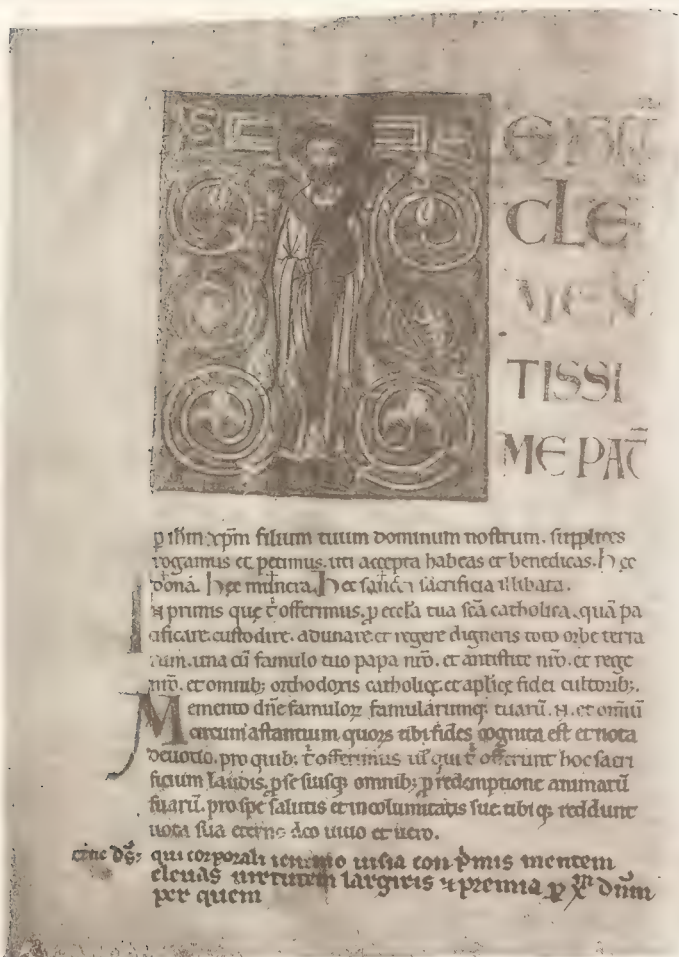 CLE
MEN
TISSI
ME PAT̄
p ihm xp̄m filium tuum dominum nostrum. supplices
rogamus et petimus. uti accepta habeas et benedicas. hęc
dona. hęc munera. hęc sancta sacrificia illibata.
In primis quę t̄ offerimus. p eccla tua scā catholica. quā pa
cificare. custodire. adunare. et regere digneris toto orbe terra
rum. una cū famulo tuo papa nr̄o. et antistite nr̄o. et rege
nr̄o. et omnib; orthodoxis catholicę et aplicę fidei cultorib;.
Memento dn̄e famuloꝝ famularumq; tuarū. N. et omiū
circum astantium. quoꝝ tibi fides cognita est et nota
deuotio. pro quib; t̄ offerimus ul̄ qui t̄ offerunt hoc sacri
ficium laudis. p se suisq; omnib; p redemptione animarū
suarū. pro spe salutis et incolumitatis suę. tibi q; reddunt
uota sua eterno deo uiuo et uero.
etne ds̄; qui corporali ieiunio uitia conp̄mis mentem
eleuas uirtutem largiris ⁊ premia p xp̄m dn̄m
per quem